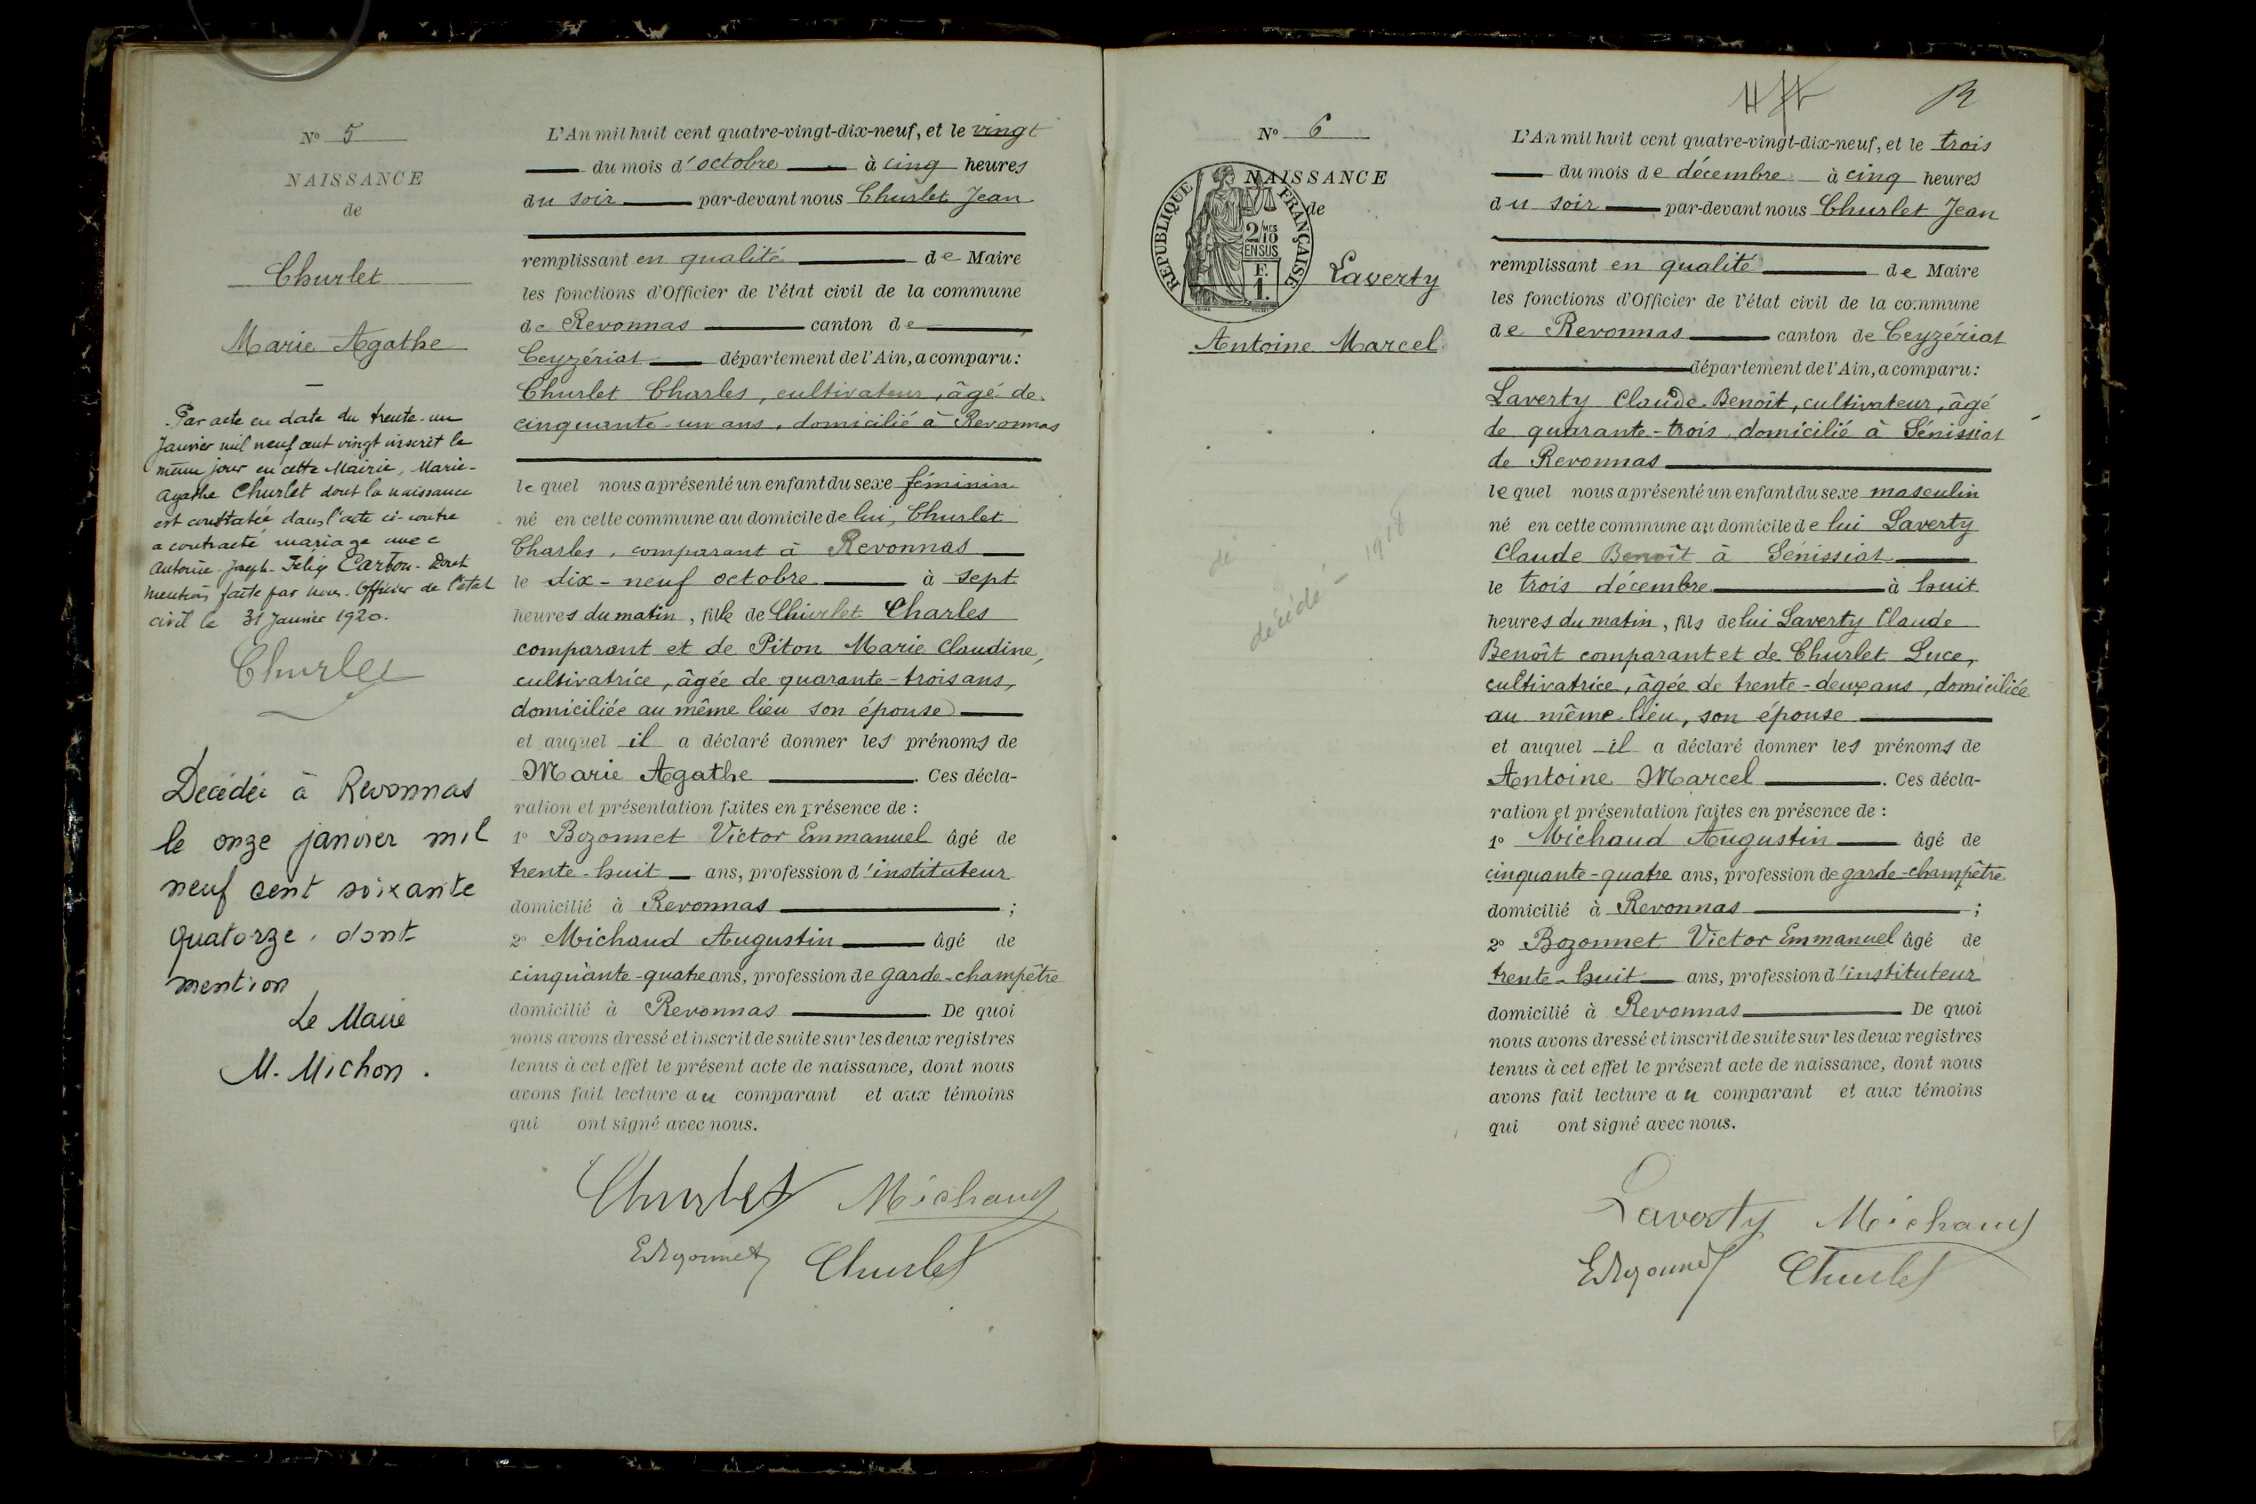 Nº 5
NAISSANCE
de
Churlet
Marie Agathe
Par acte en date du trente-un
Janvier mil neuf cent vingt inscrit le
même jour en cette Mairie, Marie-
Agathe Churlet dont la naissance
est constatée dans l'acte ci-contre
a contracté mariage avec
Antoine-Joseph-Félix Carbon. Dont
mention faite par nous. Officier de l'état
civil le 31 Janvier 1920.
Churlet
Décédée à Revonnas
le onze janvier mil
neuf cent soixante
quatorze. dont
mention
Le Maire
M. Michon.
L'An mil huit cent quatre-vingt-dix-neuf, et le vingt
du mois d'octobre à cinq heures
du soir par-devant nous Churlet Jean
remplissant en qualité de Maire
les fonctions d'Officier de l'état civil de la commune
de Revonnas canton de
Ceyzériat département de l'Ain, a comparu:
Churlet Charles, cultivateur, âgé de
cinquante-un ans, domicilié à Revonnas
lequel nous a présenté un enfant du sexe féminin
né en cette commune au domicile de lui, Churlet
Charles, comparant à Revonnas
le dix-neuf octobre à sept
heures du matin, fille de Churlet Charles
comparant et de Piton Marie Claudine,
cultivatrice, âgée de quarante-trois ans,
domiciliée au même lieu son épouse
et auquel il a déclaré donner les prénoms de
Marie Agathe. Ces décla-
ration et présentation faites en présence de :
1º Bozonnet Victor Emmanuel âgé de
trente-huit ans, profession d'instituteur
domicilié à Revonnas ;
2º Michaud Augustin âgé de
cinquante-quatre ans, profession de garde-champêtre
domicilié à Revonnas De quoi
nous avons dressé et inscrit de suite sur les deux registres
tenus à cet effet le présent acte de naissance, dont nous
avons fait lecture au comparant et aux témoins
qui ont signé avec nous.
Churlet Michaud
EBozonnet Churlet
Nº 6
NAISSANCE
de
RÉPUBLIQUE FRANÇAISE
2/10 MES
EN SUS
F.
1.
Laverty
Antoine Marcel
décédé 1918
L'An mil huit cent quatre-vingt-dix-neuf, et le trois
du mois de décembre à cinq heures
du soir par-devant nous Churlet Jean
remplissant en qualité de Maire
les fonctions d'Officier de l'état civil de la commune
de Revonnas canton de Ceyzériat
département de l'Ain, a comparu:
Laverty Claude Benoît, cultivateur, âgé
de quarante-trois, domicilié à Sénissiat
de Revonnas
lequel nous a présenté un enfant du sexe masculin
né en cette commune au domicile de lui Laverty
Claude Benoît à Sénissiat
le trois décembre à huit
heures du matin, fils de lui Laverty Claude
Benoît comparant et de Churlet Luce,
cultivatrice, âgée de trente-deux ans, domiciliée
au même lieu, son épouse
et auquel il a déclaré donner les prénoms de
Antoine Marcel. Ces décla-
ration et présentation faites en présence de :
1º Michaud Augustin âgé de
cinquante-quatre ans, profession de garde-champêtre
domicilié à Revonnas ;
2º Bozonnet Victor Emmanuel âgé de
trente-huit ans, profession d'instituteur
domicilié à Revonnas De quoi
nous avons dressé et inscrit de suite sur les deux registres
tenus à cet effet le présent acte de naissance, dont nous
avons fait lecture au comparant et aux témoins
qui ont signé avec nous.
Laverty Michaud
EBozonnet Churlet